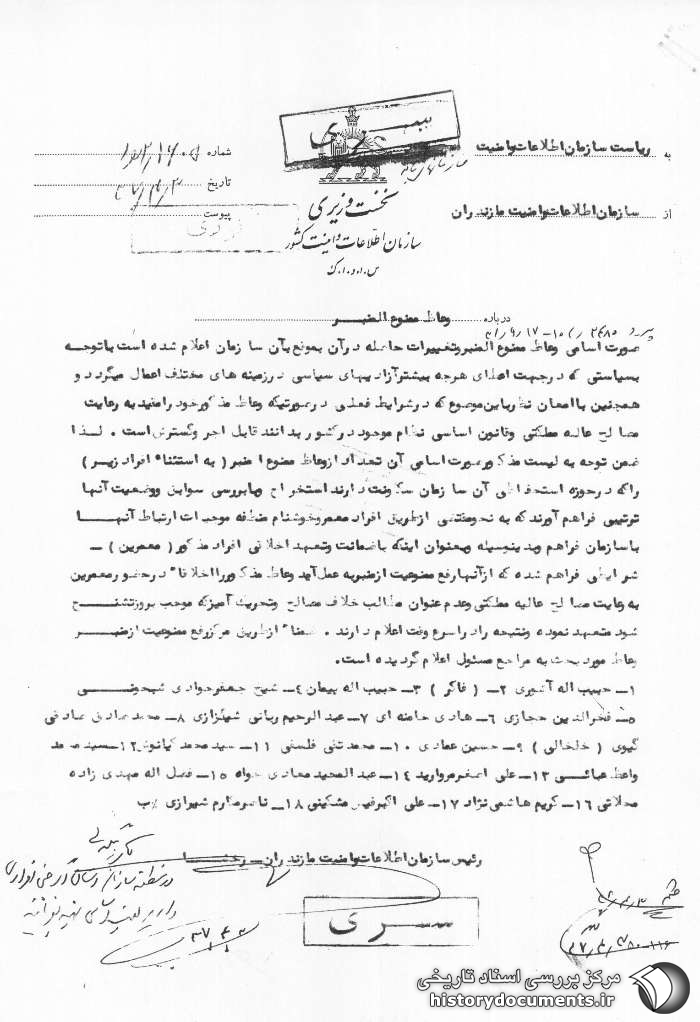 سری
به ریاست سازمان اطلاعات وامنیت
شماره
تاریخ
از سازمان اطلاعات وامنیت مازندران
پیوست
نخست وزیری
سازمان اطلاعات و امنیت کشور
س.ا.و.ا.ک
درباره وعاظ ممنوع المنبر
پیرو
صورت اسامی وعاظ ممنوع المنبروتغییرات حاصله درآن بموقع بآن سا زمان اعلام شده است باتوجه
بسیاستی که درجهت اعطای هرچه بیشترآزادیهای سیاسی درزمینه های مختلف اعمال میگردد و
همچنین باامعان نظرباین موضوع که درشرایط فعلی درصورتیکه وعاظ مذکورخود رامقید به رعایت
مصا لح عالیه مملکتی وقانون اساسی نظام موجود درکشور بدانند قابل اجر وگسترش است . لذا
ضمن توجه به لیست مذکور صورت اسامی آن تعداد ازوعاظ ممنوع ا لمنبر ( به استثناء افراد زیر )
راکه درحوزه استحفاظی آن سا زمان سکونت دارند استخراج وبابررسی سوابق ووضعیت آنها
ترتیبی فراهم آورند که به نحومقتضی ازطریق افراد معمروخوشنام منطقه موجبات ارتباط آنها
باسازمان فراهم وبدینوسیله وبعنوان اینکه باضمانت وتعهد اخلاقی افراد مذکور ( معمرین ) ـ
شرایطی فراهم شده که ازآنها رفع ممنوعیت ازمنبربه عمل آید وعاظ مذکوررااخلاقاً درحضورمعمرین
به رعایت مصا لح عالیه مملکتی وعدم عنوان مطالب خلاف مصالح وتحریک آمیزکه موجب بروزتشنج
شود متعهد نموده ونتیجه رادراسرع وقت اعلام دارند . ضمناً ازطریق مرکزرفع ممنوعیت ازمنبر
وعاظ مورد بحث به مراجع مسئول اعلام گردیده است.
۱ـ حبیب اله آشوری ۲ـ ( فاکر ) ۳ـ حبیب اله پیمان ۴ـ شیخ جعفرجوادی شجونی
۵ـ فخرالدین حجازی ۶ـ هادی خامنه ای ۷ـ عبدالرحیم ربانی شیرازی ۸ـ محمد صادق صادقی
گیوی ( خلخالی ) ۹ـ حسین عمادی ۱۰ـ محمد تقی فلسفی ۱۱ـ سید محمد کیانوش ۱۲ـ سید محمد
واعظ عبائی ۱۳ـ علی اصغرمروارید ۱۴ـ عبدالمجید معادی خواه ۱۵ـ فضل اله مهدی زاده
محلاتی ۱۶ـ کریم هاشمی نژاد ۱۷ـ علی اکبرفیض مشکینی ۱۸ـ ناصرمکارم شیرازی
رئیس سازمان اطلاعات وامنیت مازندران
سری
مرکز بررسی اسناد تاریخی
historydocuments.ir